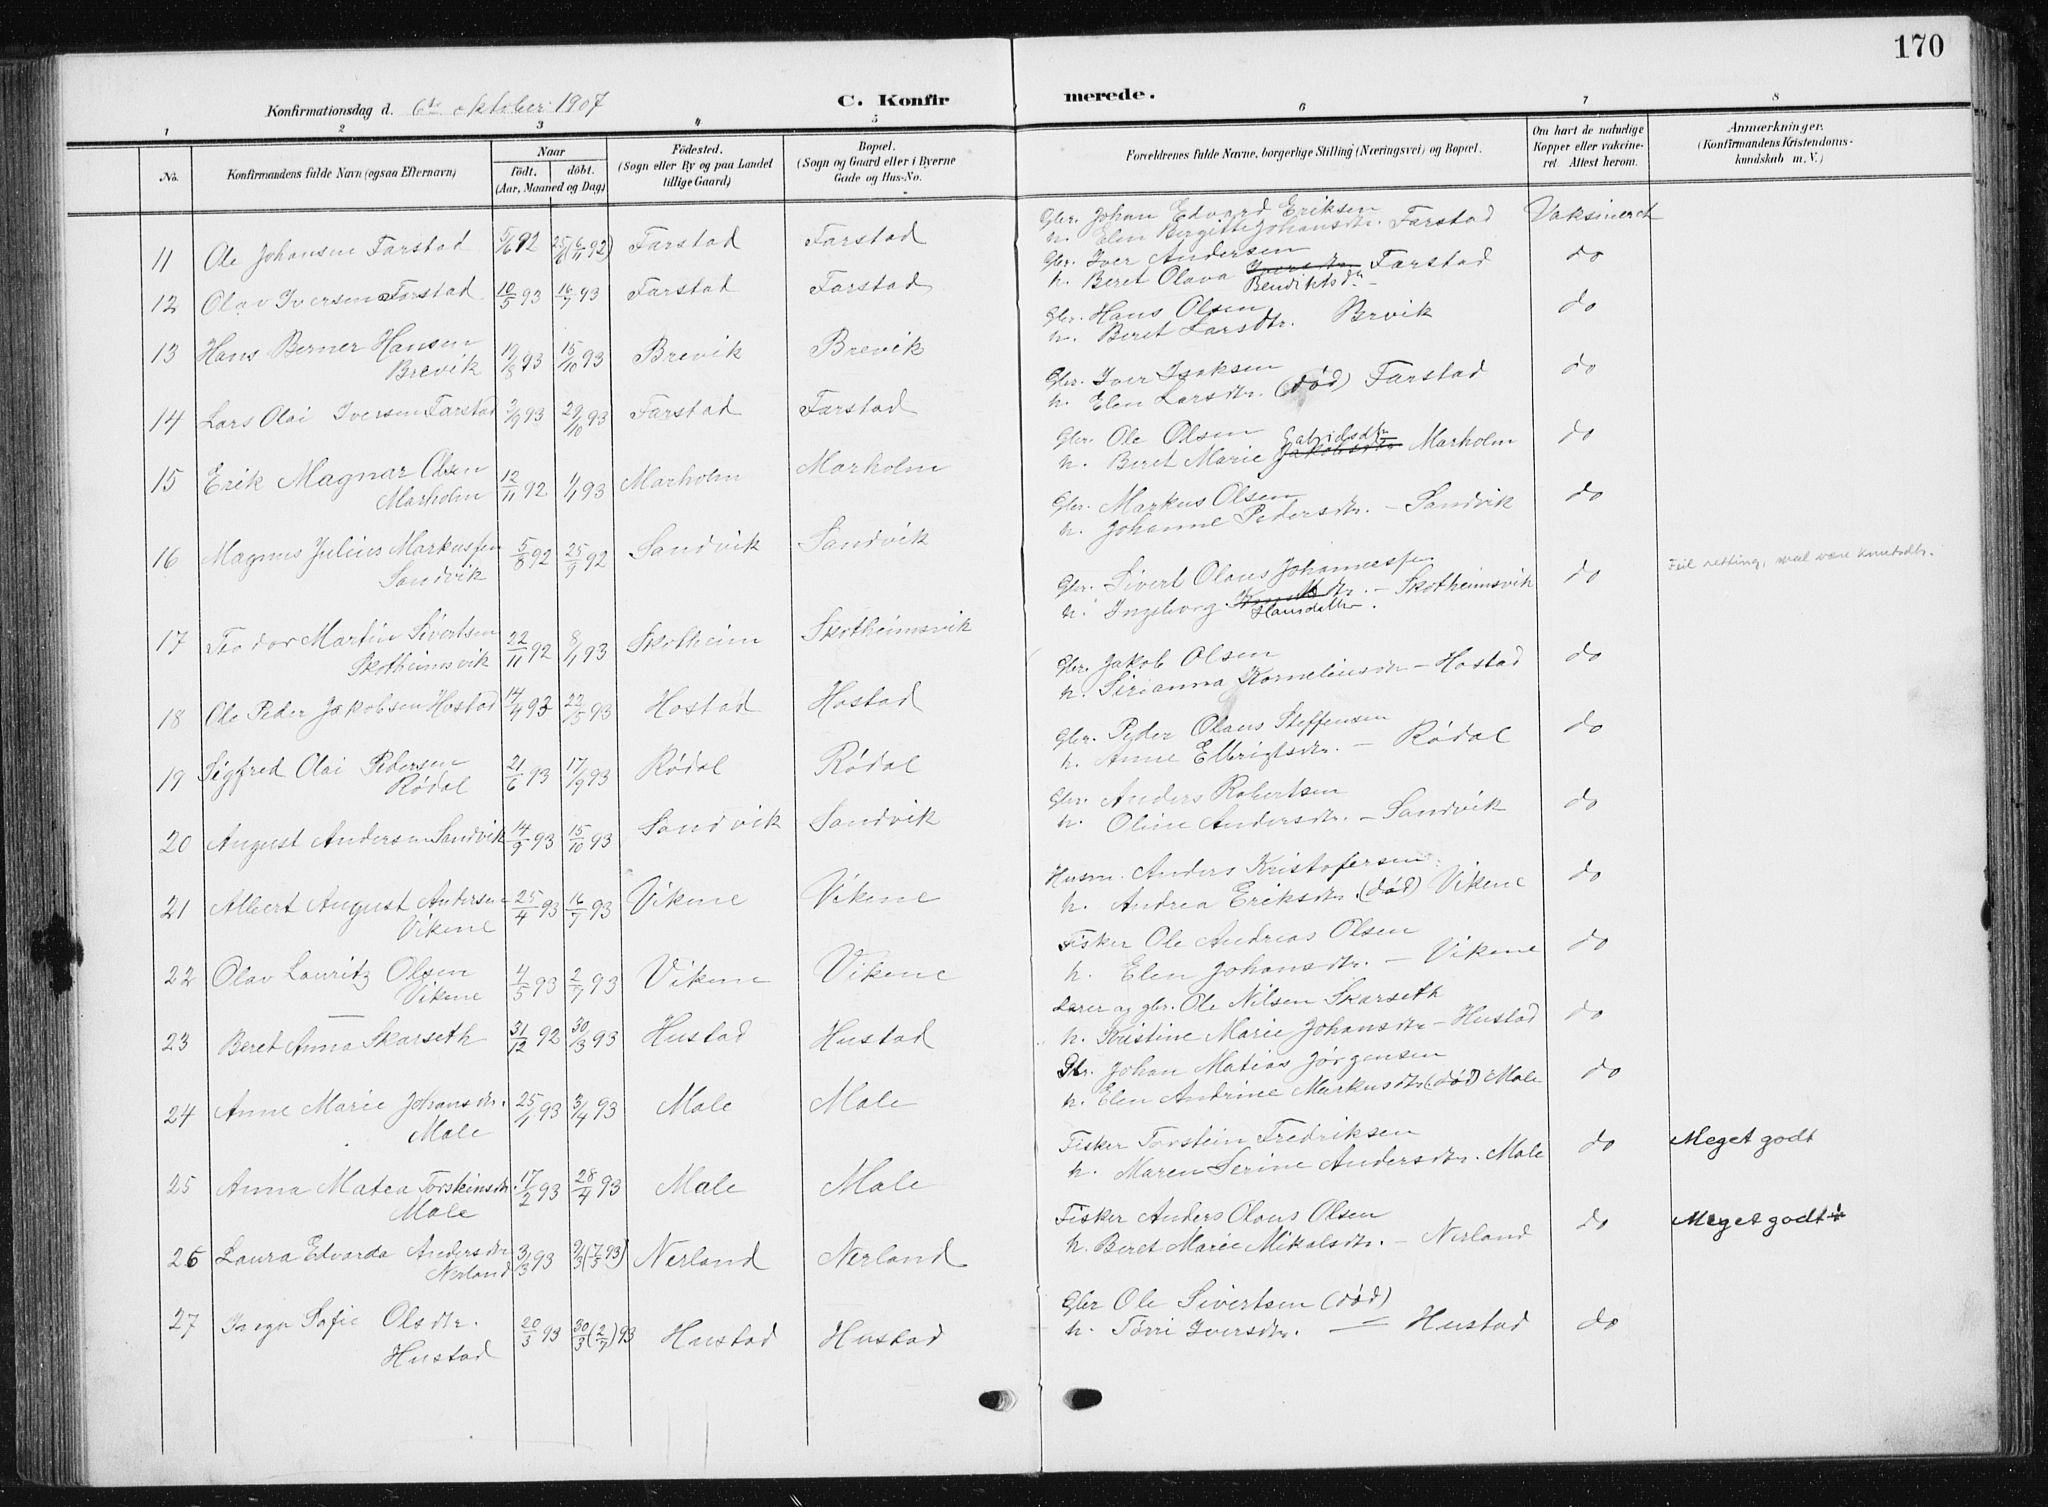 170
Konfirmationsdag d. 6te oktober 1907
C. Konfirmerede.
1 2 3 4 5 6 7 8
No. Konfirmandens fulde Navn (ogsaa Efternavn) Naar født. døbt. (Aar, Maaned og Dag) Fødested. (Sogn eller By og paa Landet tillige Gaard) Bopæl. (Sogn og Gaard eller i Byerne Gade og Hus-No. Forældrenes fulde Navne, borgerlige Stilling (Næringsvei) og Bopæl. Om havt de naturlige Kopper eller vakcineret. Attest herom. Anmærkninger. (Konfirmandens Kristendomskundskab m. V.)
11 Ole Johansen Farstad 5/6 92 25/6 (6/11 92) Farstad Farstad Gbr. Johan Edvard Eriksen
h. Elen Birgitte Johansdtr. Farstad Vaksineret
12 Olav Iversen Farstad 10/5 93 16/7 93 Farstad Farstad Gbr. Iver Andersen
h. Beret Olava Iversdtr Farstad do
Bendiktsdtr
13 Hans Berner Hansen
Brevik 19/8 93 15/10 93 Brevik Brevik Gbr. Hans Olsen
h. Beret Larsdtr. Brvik do
14 Lars Olai Iversen Farstad 3/9 93 29/10 93 Farstad Farstad Gbr. Iver Isaksen
h. Elen Larsdtr. (død) Farstad do
15 Erik Magnar Olsen
Marholm 12/11 92 1/1 93 Marholm Marholm Gbr. Ole Olsen
h. Beret Marie Jakobsdtr Gabrielsdtr Marholm do
16 Magnus Julius Markussen
Sandvik 5/8 92 25/9 92 Sandvik Sandvik Gbr. Markus Olsen
h. Johanne Pedersdtr. – Sandvik do
17 Teodor Martin Sivertsen
Skotheimsvik 22/11 92 8/1 93 Skotheim Skotheimsvik Gbr. Sivert Olaus Johannessen
h. Ingeborg Knutsdtr. – Skotheimsvik do Feil retting, skal være Knutsdtr.
Hansdatter.
18 Ole Peder Jakobsen Hostad 14/4 93 22/5 93 Hostad Hostad Gbr. Jakob Olsen
h. Sirianna Korneliusdtr – Hostad do
19 Sigfred Olai Pedersen
Rødal 21/6 93 17/9 93 Rødal Rødal Gbr. Peder Olaus Steffensen
h. Anne Elbrigtsdtr. – Rødal do
20 August Andersen Sandvik 14/9 93 15/10 93 Sandvik Sandvik Gbr. Anders Robertsen
h. Oline Andersdtr. – Sandvik do
21 Albert August Andersen
Vikene 25/4 93 16/7 93 Vikene Vikene Husm. Anders Kristofersen
h. Andrea Eriksdtr. (død) Vikene do
22 Olav Lauritz Olsen
Vikene 4/5 93 2/7 93 Vikene Vikene Fisker Ole Andreas Olsen
h. Elen Johansdtr. – Vikene do
23 Beret Anna Skarseth 31/12 92 30/3 93 Hustad Hustad Lærer og gbr. Ole Nilsen Skarseth
h. Kristine Marie Johansdtr – Hustad do
24 Anne Marie Johansdtr.
Male 25/1 93 3/4 93 Male Male Gbr. Johan Matias Jørgensen
h. Elen Andrine Markusdtr (død) Male do
25 Anna Matea Torsteinsdtr.
Male 17/2 93 28/4 93 Male Male Fisker Torstein Fredriksen
h. Maren Serine Andersdtr. Male do Meget godt
26 Laura Edvarda Andersdtr
Nerland 3/3 93 9/3 (7/5 93) Nerland Nerland Fisker Anders Olaus Olsen
h. Beret Marie Mikalsdtr. – Nerland do Meget godt
27 Inga Sofie Olsdtr.
Hustad 20/3 93 30/3 (2/7) 93 Hustad Hustad Gbr Ole Sivertsen (død)
h. Torri Iversdtr. – Hustad do